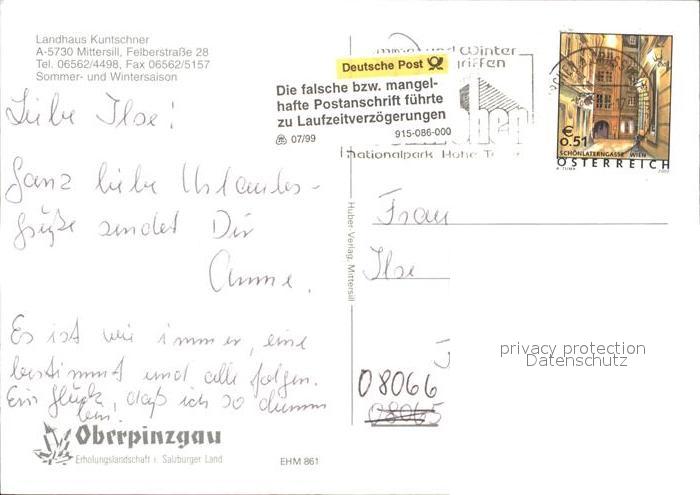 Landhaus Kuntschner
A-5730 Mittersill, Felberstraße 28
Tel. 06562/4498, Fax 06562/5157
Sommer- und Wintersaison
Liebe Ilse!
Ganz liebe Urlaubs-
grüße sendet Dir
Anne.
Es ist wie immer, eine
bestimmt und alle folgen.
Ein Glück, daß ich so dumm
bin.
Oberpinzgau
Erholungslandschaft i. Salzburger Land
EHM 861
und Winter
Deutsche Post
Die falsche bzw. mangel-
hafte Postanschrift führte
zu Laufzeitverzögerungen
07/99 915-086-000
nationalpark Hohe
€
0.51
SCHÖNLATERNGASSE WIEN
ÖSTERREICH
Huber-Verlag, Mittersill
Frau
Ilse
08066
08065
privacy protection
Datenschutz